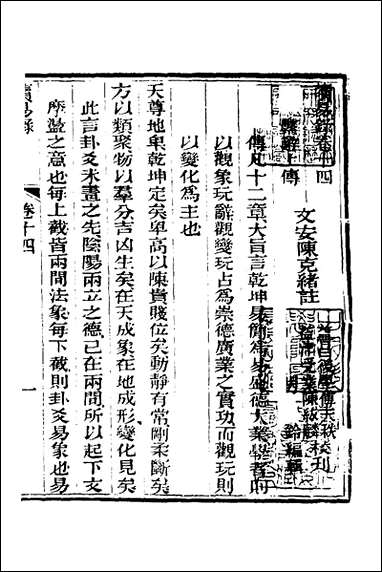 讀易錄卷十四
文安陳克緒註
繫辭上傳
傳凡十二章大旨言乾坤易簡為
盛德大業學者所
以觀象玩辭觀變玩占為崇德廣業之實功而觀玩則
以變化為主也
天尊地卑乾坤定矣卑高以陳貴賤位矣動靜有常剛柔斷矣
方以類聚物以羣分吉凶生矣在天成象在地成形變化見矣
此言卦爻未畫之先陰陽兩立之德已在兩間所以起下文
摩盪之意也每上截皆兩間法象每下截則卦爻易象也易
讀易錄
卷十四
一